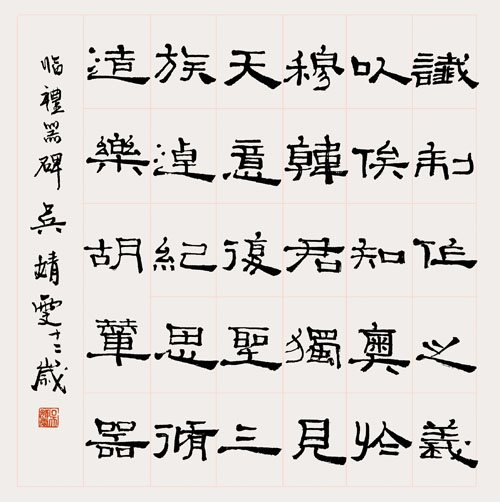 讖制作之義
以俟知奧於
穆韓君獨見
天意復聖三
族逴紀思脩
造樂胡輦器
临禮器碑 吳婧雯十二歲